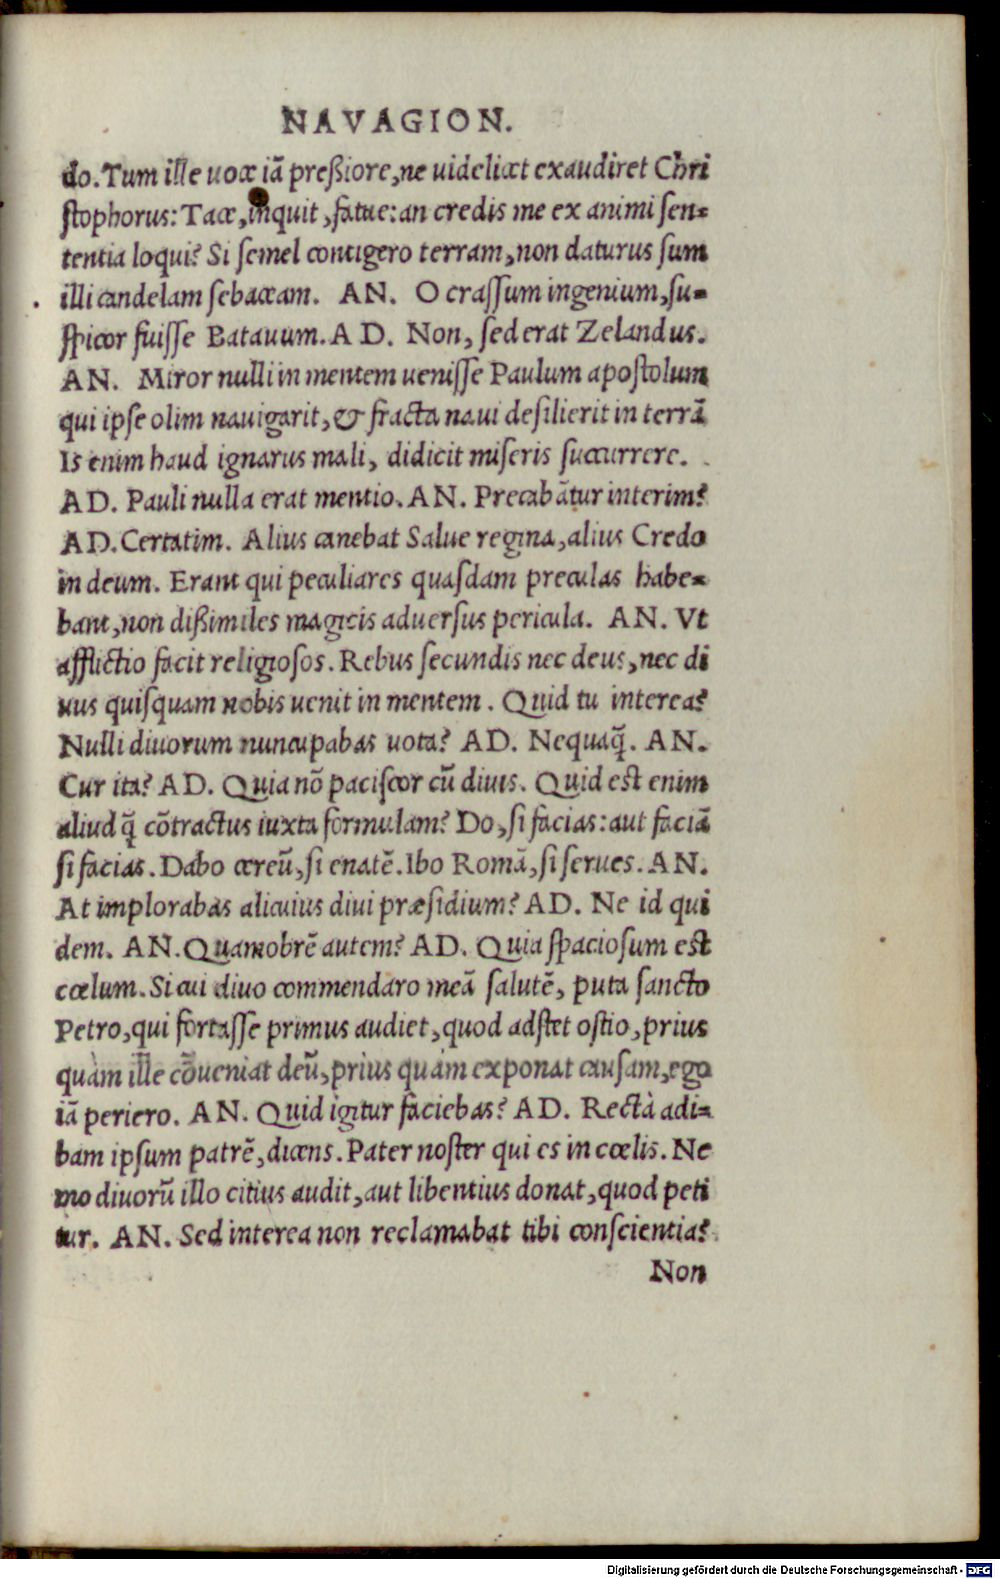 NAVAGION.
do. Tum ille uoce iã preßiore, ne uidelicet exaudiret Chri
ſtophorus: Tace, inquit, fatue: an credis me ex animi ſen-
tentia loqui? Si ſemel contigero terram, non daturus ſum
illi candelam ſebaceam. AN. O craſſum ingenium, ſu-
ſpicor fuiſſe Batauum. AD. Non, ſed erat Zelandus.
AN. Miror nulli in mentem ueniſſe Paulum apoſtolum
qui ipſe olim nauigarit, & fracta naui deſilierit in terrã.
Is enim haud ignarus mali, didicit miſeris ſuccurrere.
AD. Pauli nulla erat mentio. AN. Precabãtur interim?
AD. Certatim. Alius canebat Salue regina, alius Credo
in deum. Erant qui peculiares quaſdam preculas habe-
bant, non dißimiles magicis aduerſus pericula. AN. Vt
afflictio facit religioſos. Rebus ſecundis nec deus, nec di
uus quiſquam nobis uenit in mentem. Quid tu interea?
Nulli diuorum nuncupabas uota? AD. Nequaq̃. AN.
Cur ita? AD. Quia nõ paciſcor cũ diuis. Quid est enim
aliud q̃ cõtractus iuxta formulam? Do, ſi facias: aut faciã
ſi facias. Dabo cereũ, ſi enatẽ. Ibo Romã, ſi ſerues. AN.
At implorabas alicuius diui præſidium? AD. Ne id qui
dem. AN. Quamobrẽ autem? AD. Quia ſpacioſum est
cœlum. Si cui diuo commendaro meã ſalutẽ, puta ſancto
Petro, qui fortaſſe primus audiet, quod adſtet oſtio, prius
quàm ille cõueniat deũ, prius quàm exponat cauſam, ego
iã periero. AN. Quid igitur faciebas? AD. Rectà adi-
bam ipſum patrẽ, dicens. Pater noſter qui es in cœlis. Ne
mo diuorũ illo citius audit, aut libentius donat, quod peti
tur. AN. Sed interea non reclamabat tibi conſcientia?
Non
Digitalisierung gefördert durch die Deutsche Forschungsgemeinschaft - DFG